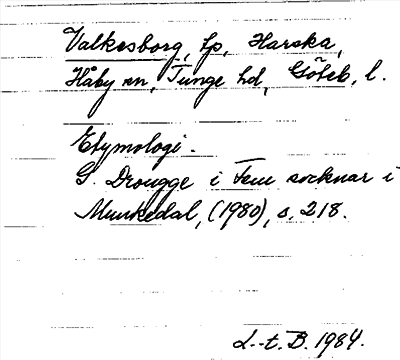 Valkesborg, lp, Harska,
Håby sn, Tunge hd, Göteb, l.
Etymologi.
G. Drougge i Fem socknar i
Munkedal, (1980), s. 218.
L.-t. B. 1984.